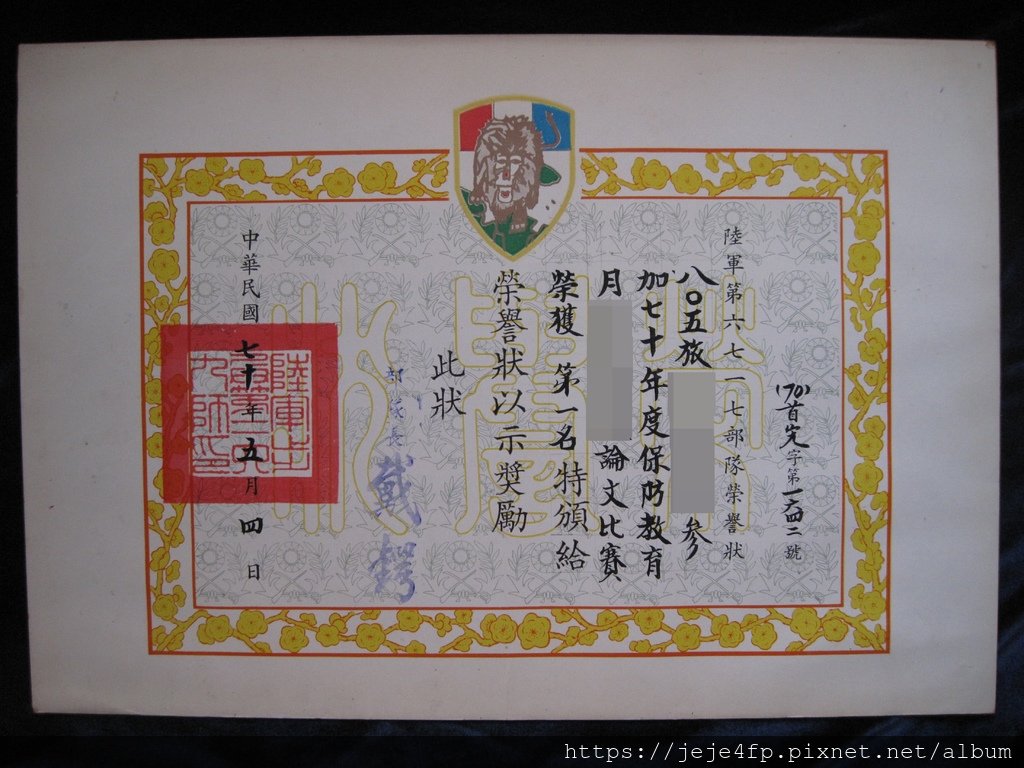 (70)首先字第一六四二號
陸軍第六七一七部隊榮譽狀
八〇五旅 參
加七十年度保防教育
月 論文比賽
榮獲 第一名特頒給
榮譽狀以示奬勵
此狀
部隊長 戴鍔
中華民國七十年五月四日
榮譽狀
https://jeje4fp.pixnet.net/album